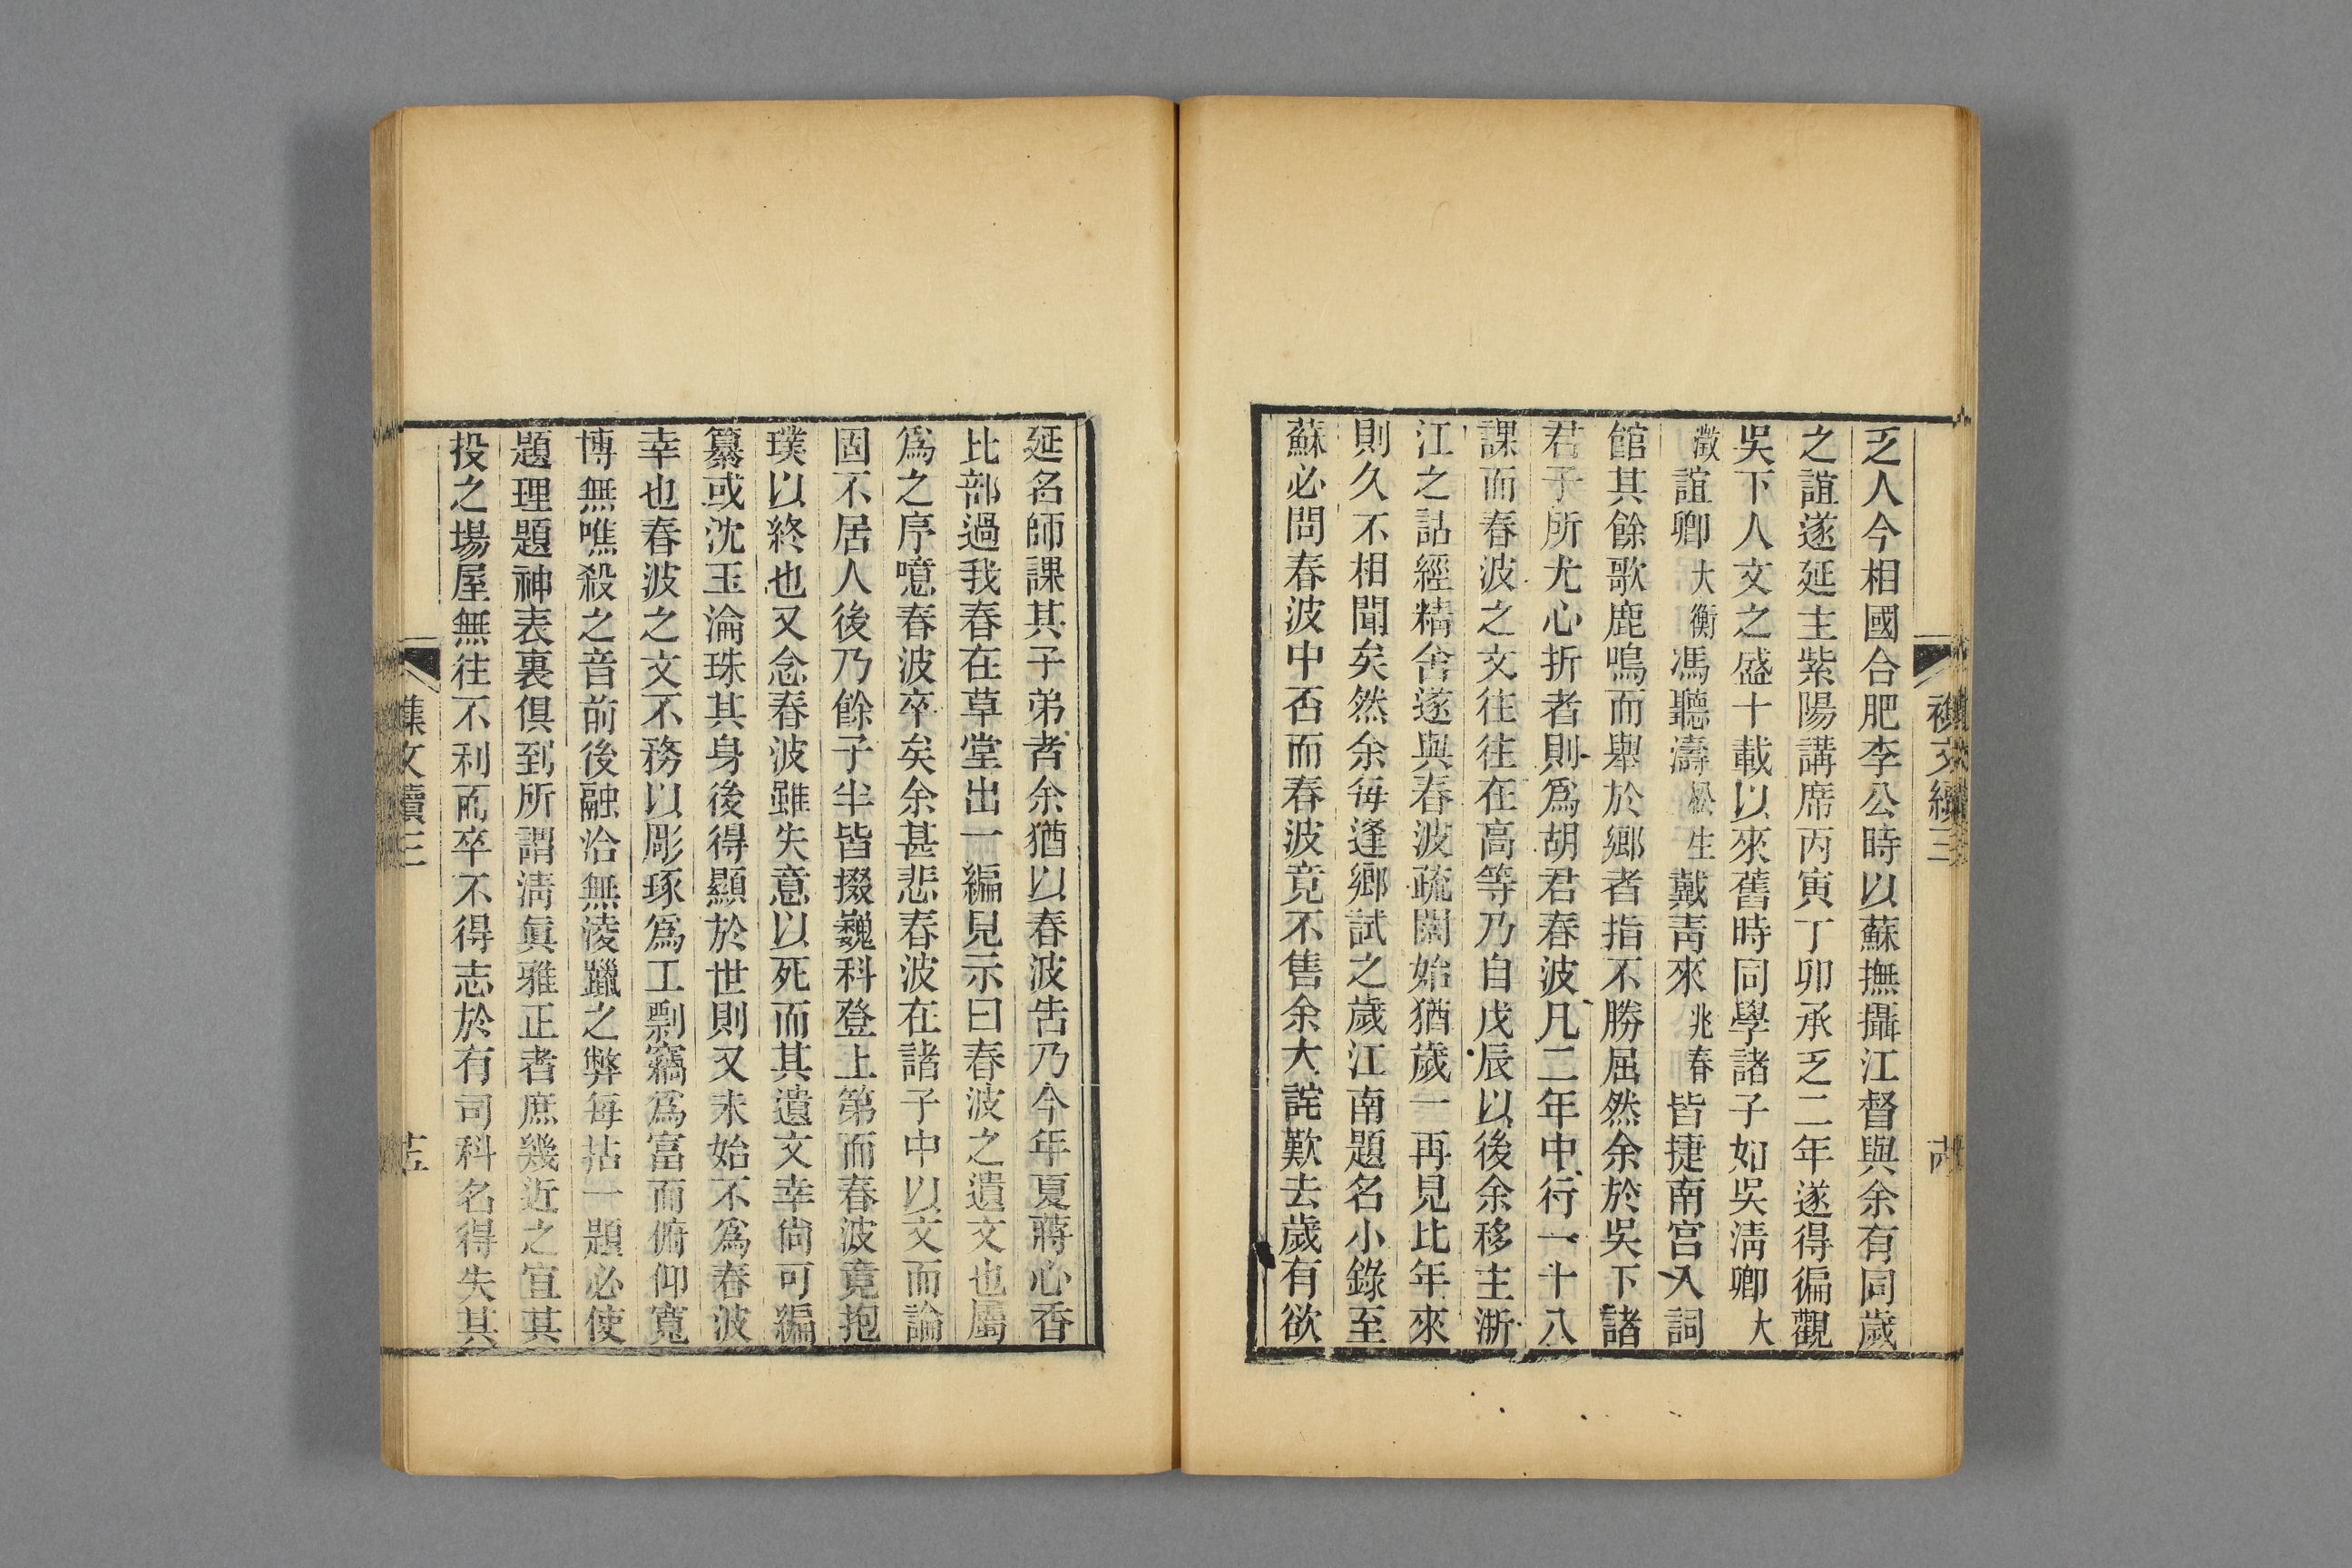 乏人今相國合肥李公時以蘇撫攝江督與余有同歲
之誼遂延主紫陽講席丙寅丁卯承乏二年遂得徧觀
吳下人文之盛十載以來舊時同學諸子如吳淸卿大
澂誼卿大衡馮聽濤松生戴靑來兆春皆捷南宮入詞
館其餘歌鹿鳴而舉於鄉者指不勝屈然余於吳下諸
君子所尤心折者則爲胡君春波凡二年中行一十八
課而春波之文往往在高等乃自戊辰以後余移主浙
江之詁經精舍遂與春波疏闊始猶歲一再見比年來
則久不相聞矣然余每逢鄉試之歲江南題名小錄至
蘇必問春波中否而春波竟不售余大詫歎去歲有欲
襍文續三
延名師課其子弟者余猶以春波吿乃今年夏蔣心香
比部過我春在草堂出一編見示曰春波之遺文也屬
爲之序噫春波卒矣余甚悲春波在諸子中以文而論
固不居人後乃餘子半皆掇巍科登上第而春波竟抱
璞以終也又念春波雖失意以死而其遺文幸尙可編
纂或沈玉淪珠其身後得顯於世則又未始不爲春波
幸也春波之文不務以彫琢爲工剽竊爲富而俯仰寬
博無噍殺之音前後融洽無淩躐之弊每拈一題必使
題理題神表裏俱到所謂淸眞雅正者庶幾近之宜其
投之場屋無往不利而卒不得志於有司科名得失其
文續三